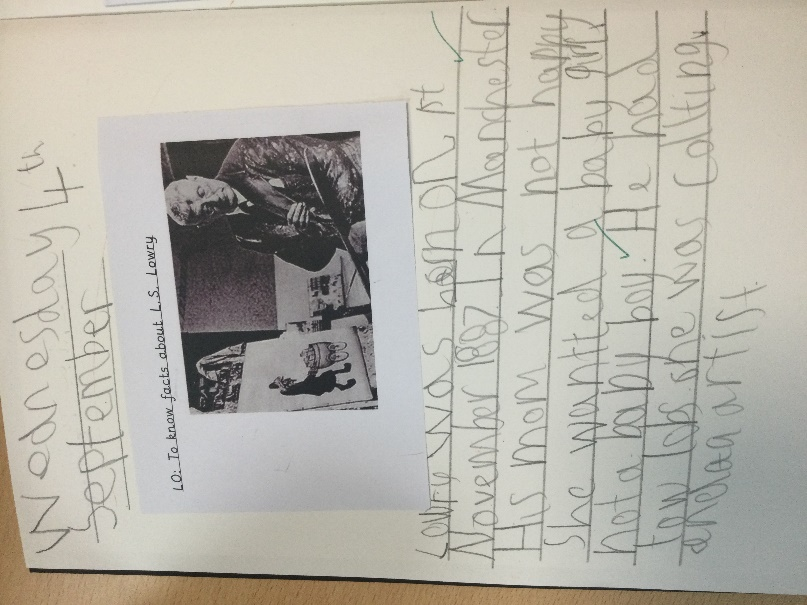 Wednesday 4th
September
LO: To know facts about L.S. Lowry
Lowry was born on 1st
November 1887 In Manchester
His mom was not happy
She wantted a baby girl,
not a baby boy. He had
few Jobs. she was collting
and
artist.